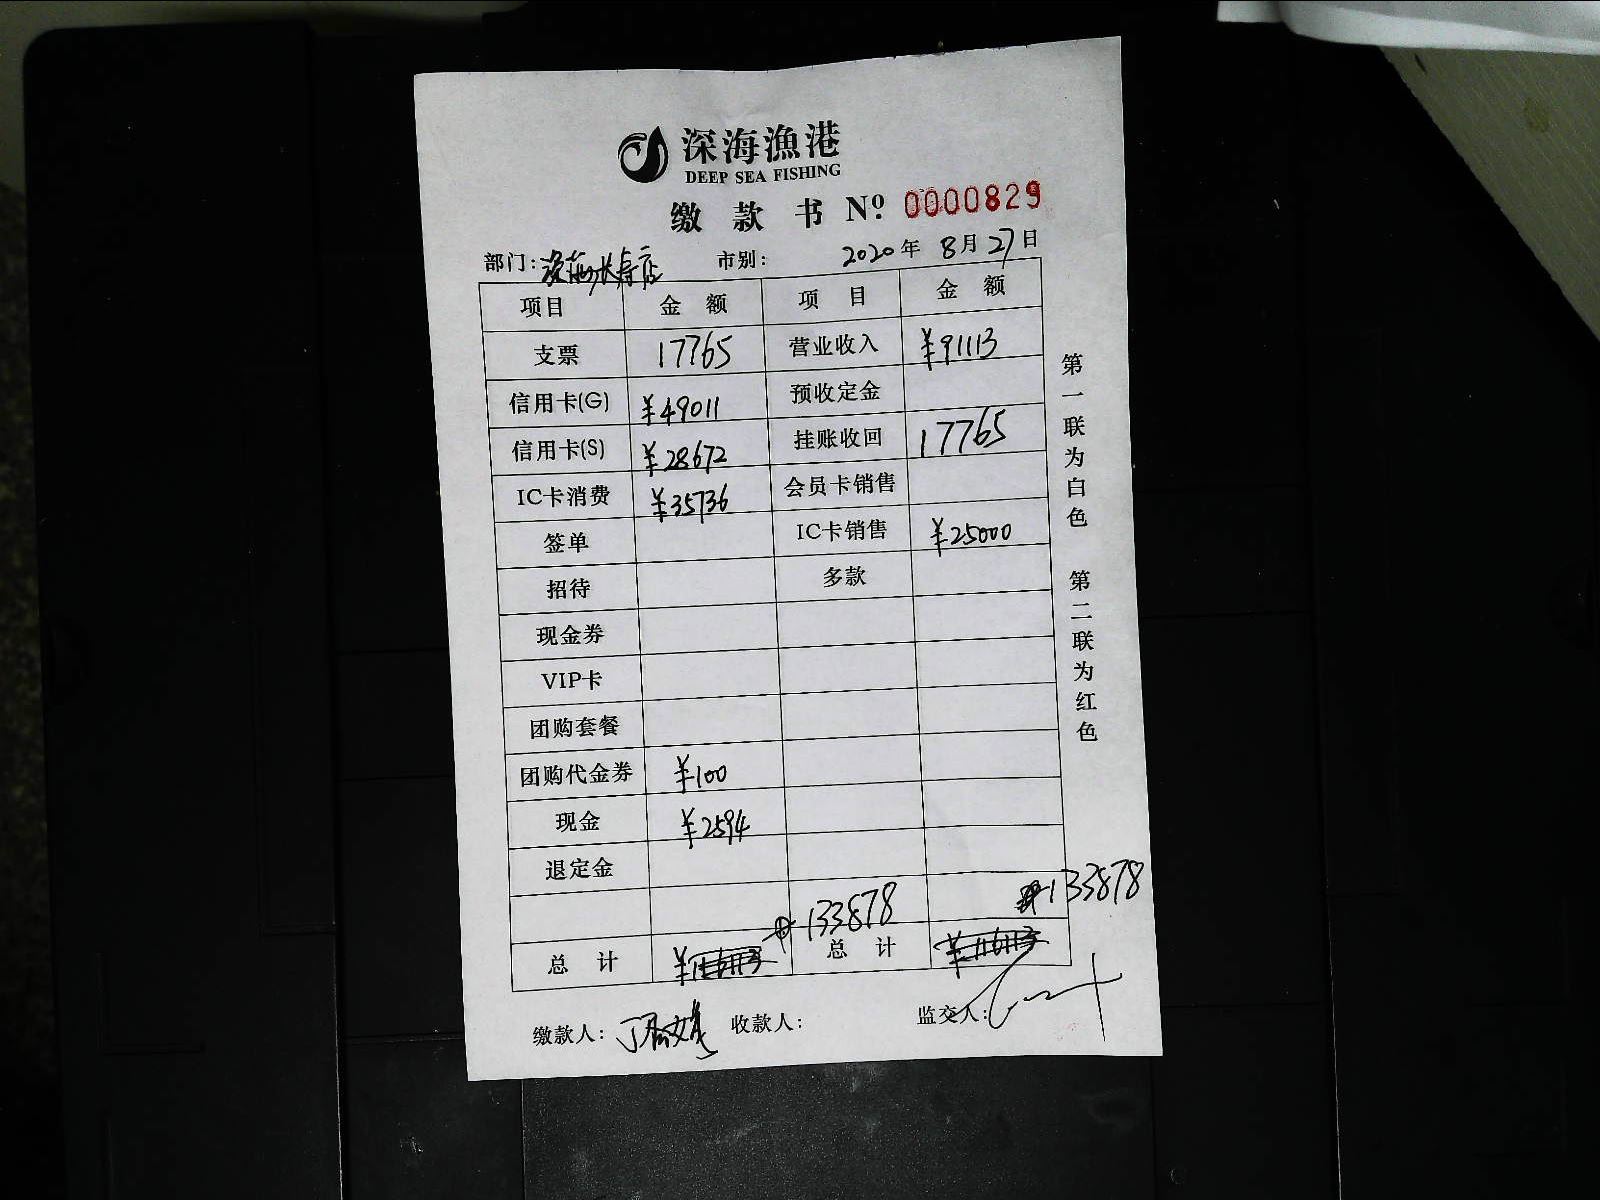 深海漁港
DEEP SEA FISHING
缴款书 Nº 0000829
部门: 深海长寿店 市别: 2020年8月27日
项目 金额 项目 金额
支票 17765 营业收入 ¥91113
信用卡(G) ¥49011 预收定金
信用卡(S) ¥28672 挂账收回 17765
IC卡消费 ¥35736 会员卡销售
签单 IC卡销售 ¥25000
招待 多款
现金券
VIP卡
团购套餐
团购代金券 ¥100
现金 ¥2594
退定金
133878 133878
总计 ¥116113 总计 ¥116113
缴款人: 收款人: 监交人:
第一联为白色 第二联为红色